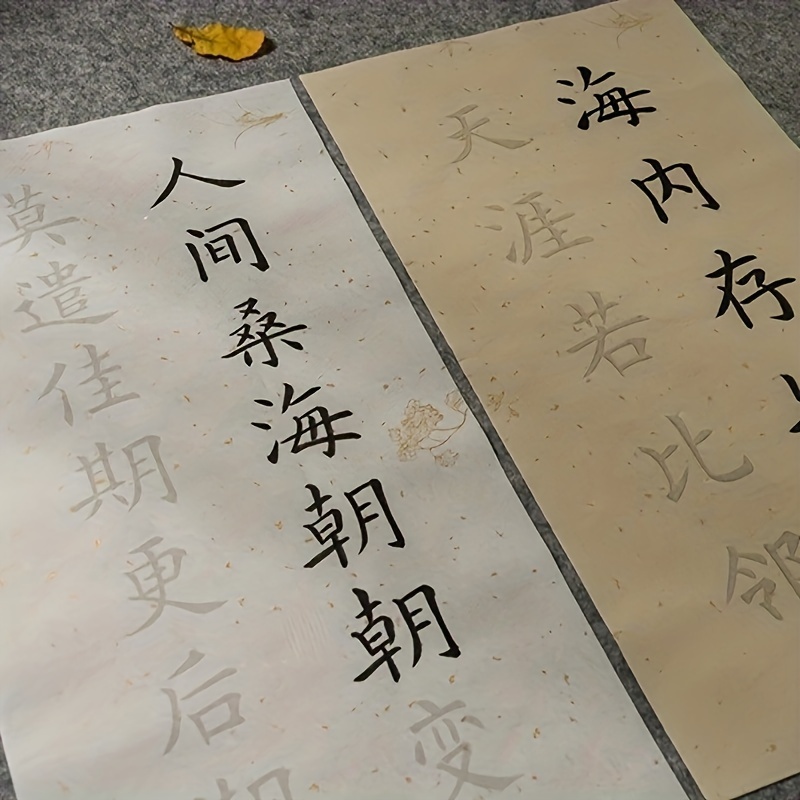 海内存
天涯若比邻
人间桑海朝朝变
莫遣佳期更后期